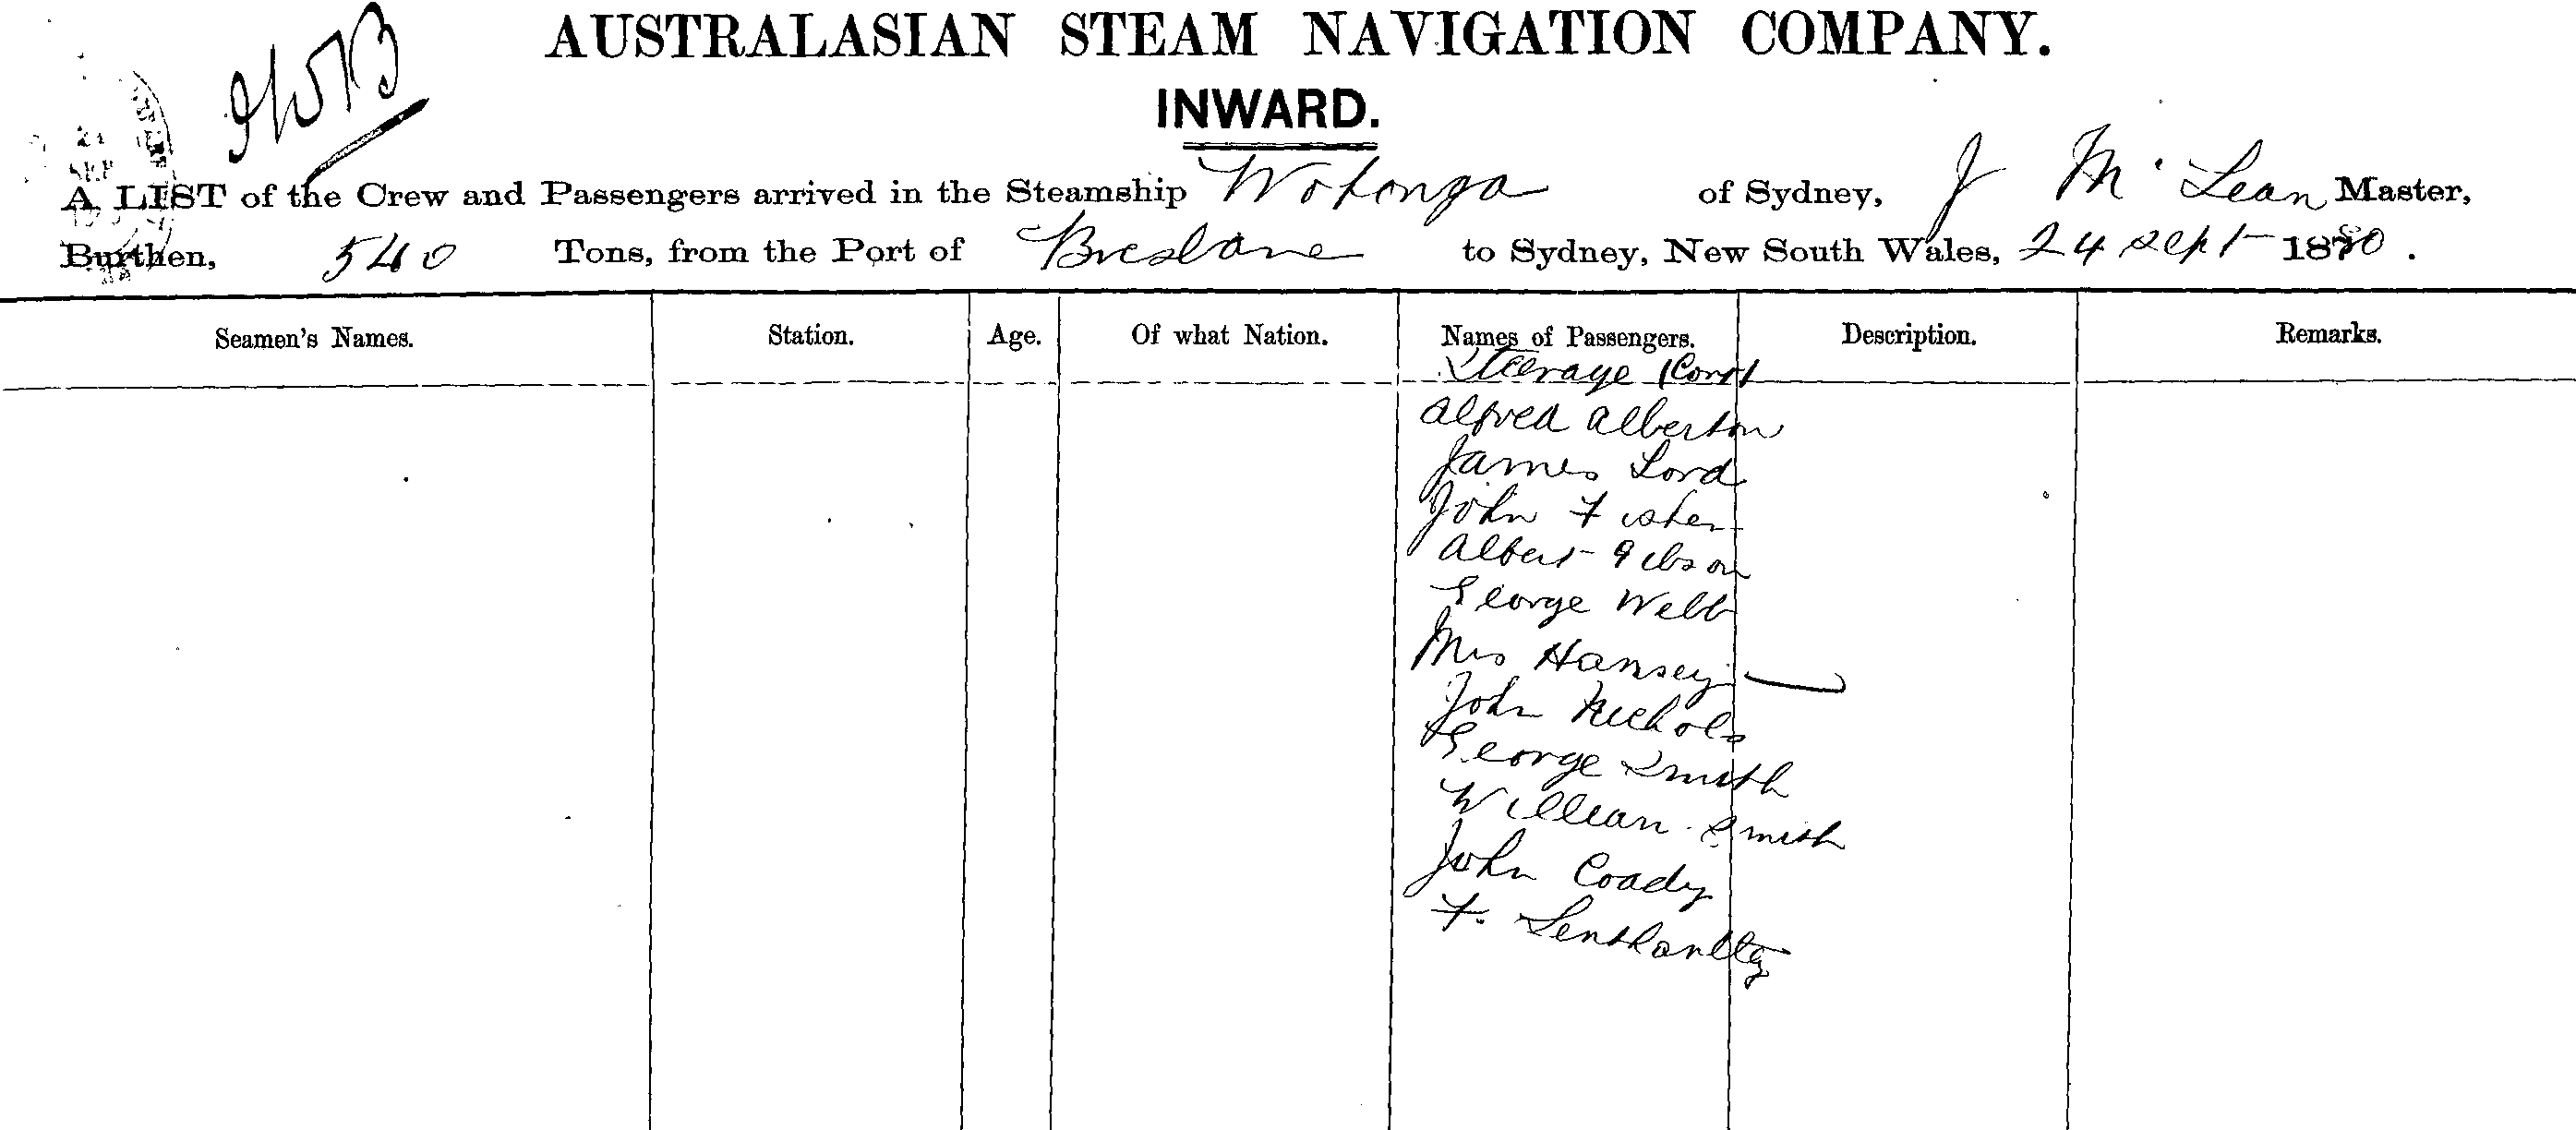 AUSTRALASIAN STEAM NAVIGATION COMPANY.
INWARD.
A LIST of the Crew and Passengers arrived in the Steamship Wotonga of Sydney, J McLean Master,
Burthen, 540 Tons, from the Port of Brisbane to Sydney, New South Wales, 24 Sept 1880.
Seamen's Names. Station. Age. Of what Nation. Names of Passengers. Description. Remarks.
Steerage (Cont)
Alfred Alberton
James Lord
John Fisher
Albert Gibson
George Webb
Mrs Hansey
John Nichols
George Smith
William Smith
John Coady
F.